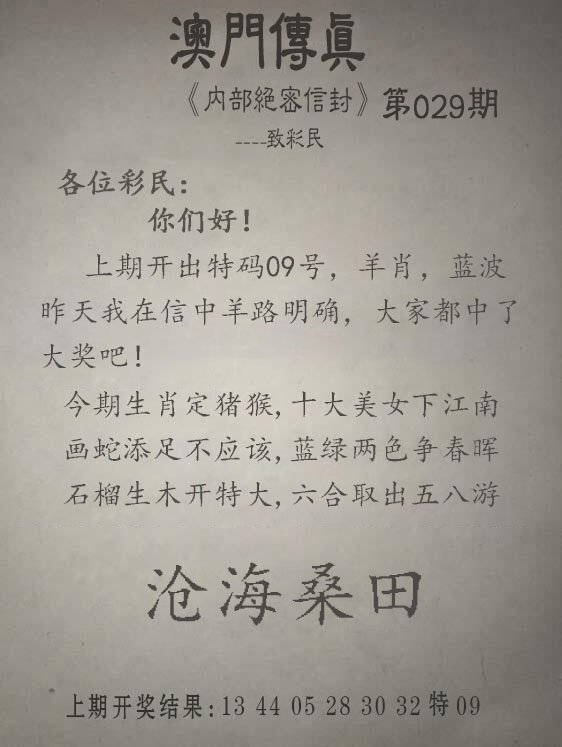 澳門傳眞
《内部絕密信封》第029期
----致彩民
各位彩民:
你们好!
上期开出特码09号，羊肖，蓝波
昨天我在信中羊路明确，大家都中了
大奖吧!
今期生肖定猪猴,十大美女下江南
画蛇添足不应该,蓝绿两色争春晖
石榴生木开特大,六合取出五八游
沧海桑田
上期开奖结果:13 44 05 28 30 32特09